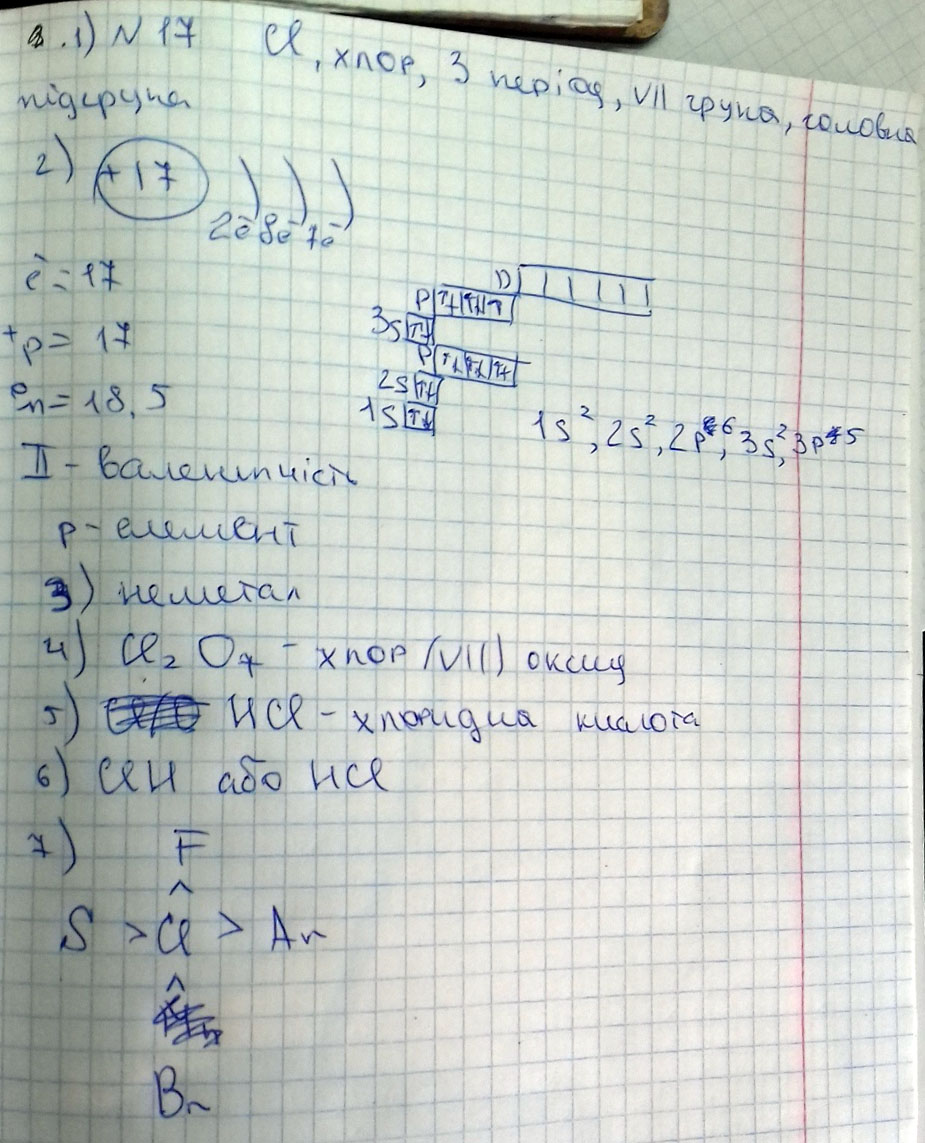 1) N 17 Cl, хлор, 3 період, VII група, головна
підгрупа
2) +17 ) ) )
2ē 8ē 7ē
ē = 17
+p = 17
°n = 18,5
D
P
3S
P
2S
1S
1s², 2s², 2p⁶, 3s², 3p⁵
II - валентність
p - елемент
3) неметал
4) Cl₂O₇ - хлор (VII) оксид
5) HCl - хлоридна кислота
6) ClH або HCl
7) F
^
S > Cl > Ar
^
Br